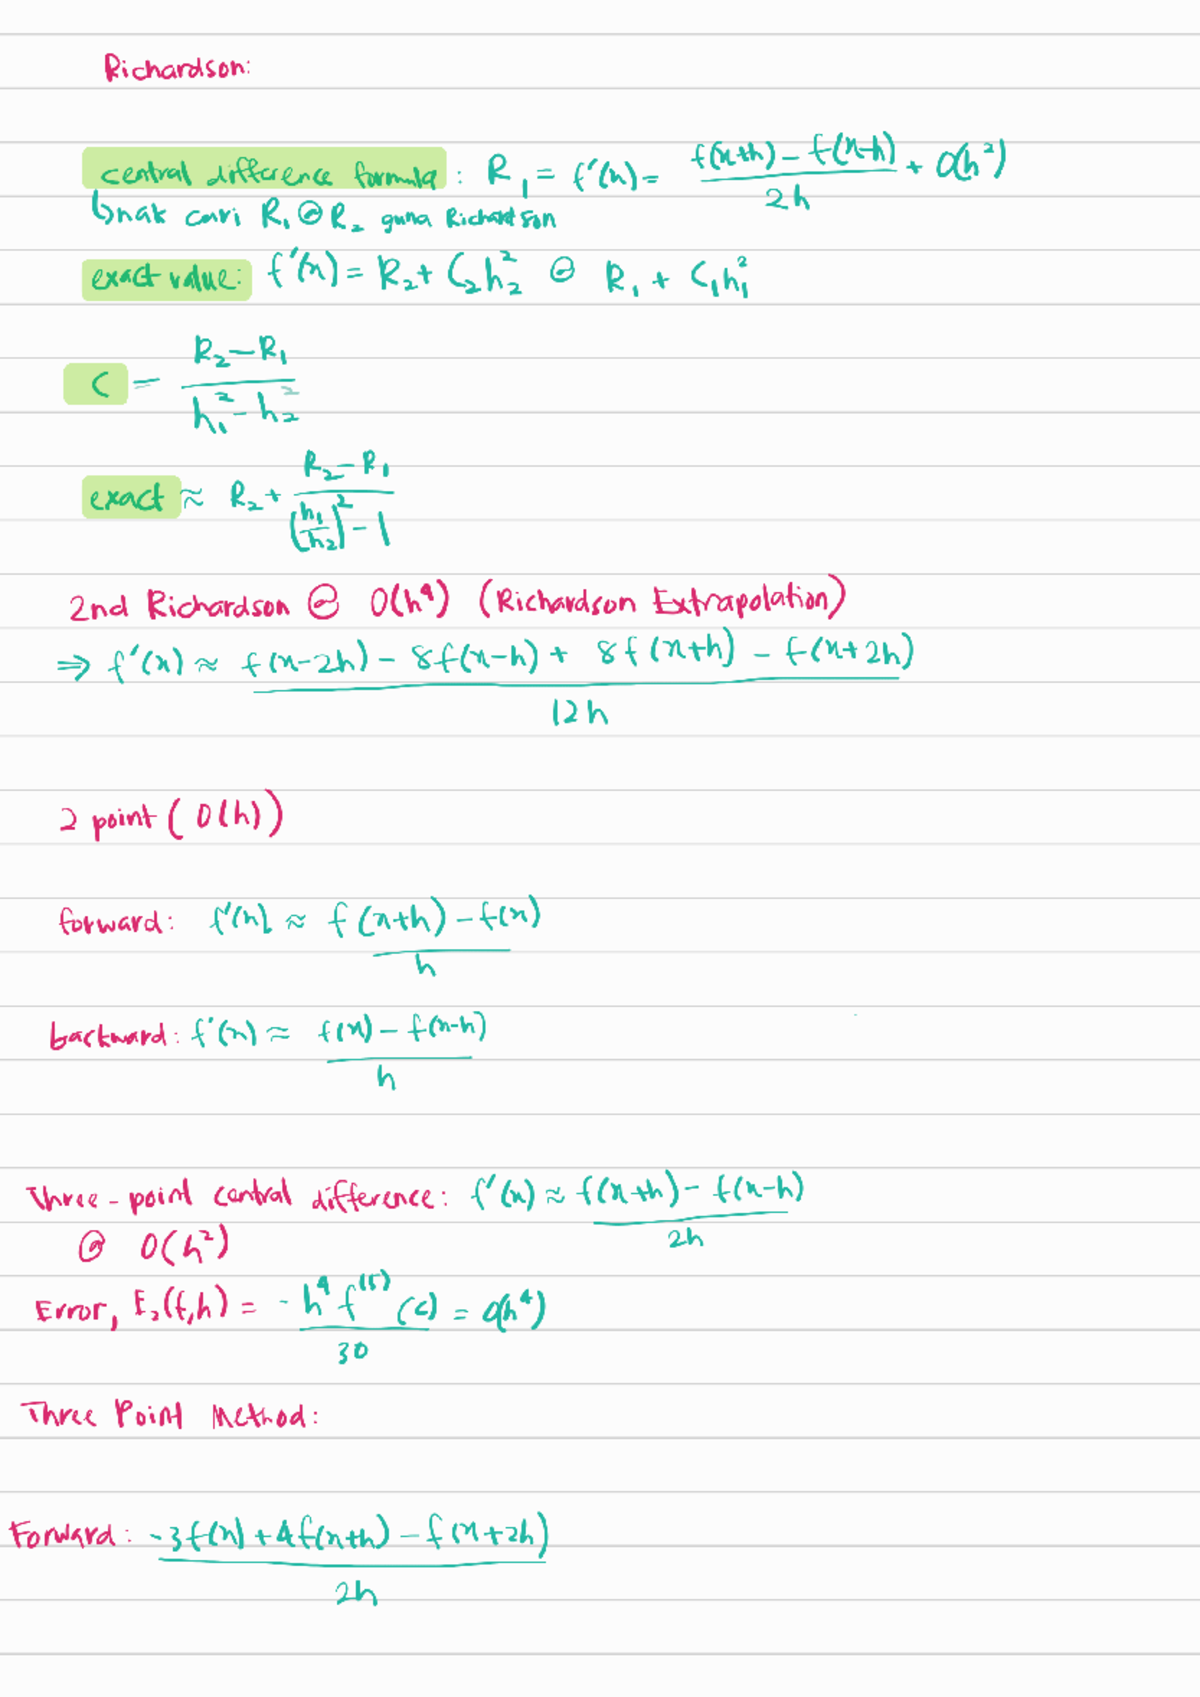 Richardson:
central difference formula : R₁ = f'(x) = (f(x+h) - f(x-h))/2h + O(h²)
↳ nak cari R₁ @ R₂ guna Richardson
exact value: f'(x) = R₂ + C₂h₂² @ R₁ + C₁h₁²
C = (R₂ - R₁)/(h₁² - h₂²)
exact ≈ R₂ + (R₂ - R₁)/((h₁/h₂)² - 1)
2nd Richardson @ O(h⁴) (Richardson Extrapolation)
⇒ f'(x) ≈ (f(x-2h) - 8f(x-h) + 8f(x+h) - f(x+2h))/12h
2 point (O(h))
forward: f'(x) ≈ (f(x+h) - f(x))/h
backward: f'(x) ≈ (f(x) - f(x-h))/h
Three-point central difference: f'(x) ≈ (f(x+h) - f(x-h))/2h
@ O(h²)
Error, E₂(f,h) = -h⁴f⁽⁵⁾(c)/30 = O(h⁴)
Three Point Method:
Forward: (-3f(x) + 4f(x+h) - f(x+2h))/2h